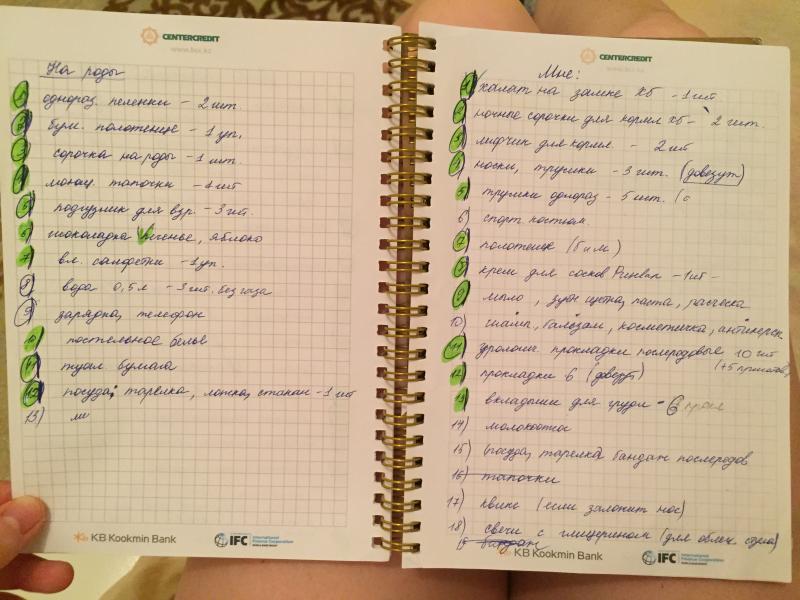 CENTERCREDIT
www.bcc.kz
На роды
1) однораз. пеленки - 2 шт.
2) бум. полотенце - 1 уп.
3) сорочка на роды - 1 шт.
4) моющ. тапочки - 1 шт
5) подгузник для взр. - 3 шт.
6) шоколадка, печенье, яблоко
7) вл. салфетки - 1 уп.
8) вода 0,5 л - 3 шт. без газа
9) зарядка, телефон
10) постельное белье
11) туал. бумага
12) посуда, тарелка, ложка, стакан - 1 шт
13)
KB Kookmin Bank
IFC International Finance Corporation
WORLD BANK GROUP
CENTERCREDIT
Мне:
1) халат на замке ХБ - 1 шт.
2) ночные сорочки для кормл ХБ - 2 шт.
3) лифчик для кормл. - 2 шт
4) носки, трусики - 3 шт. (довезут)
5) трусики однораз - 5 шт. (
6) спорт костюм
7) полотенце (б и м.)
8) крем для сосков - 1 шт -
9) мыло, зубн щетка, паста, расческа
10) шамп, бальзам, косметичка,
11) урологич. прокладки послеродовые 10 шт
(+5 принесов)
12) прокладки 6 (довезут)
13) вкладыши для груди - 6
14) молокоотсос
15) (посуда, тарелка) бандаж послеродов
16) тапочки
17) квикс (если заложит нос)
18) свечи с глицерином (для облегч. стула)
бандаж
KB Kookmin Bank
IFC International Finance Corporation
WORLD BANK GROUP